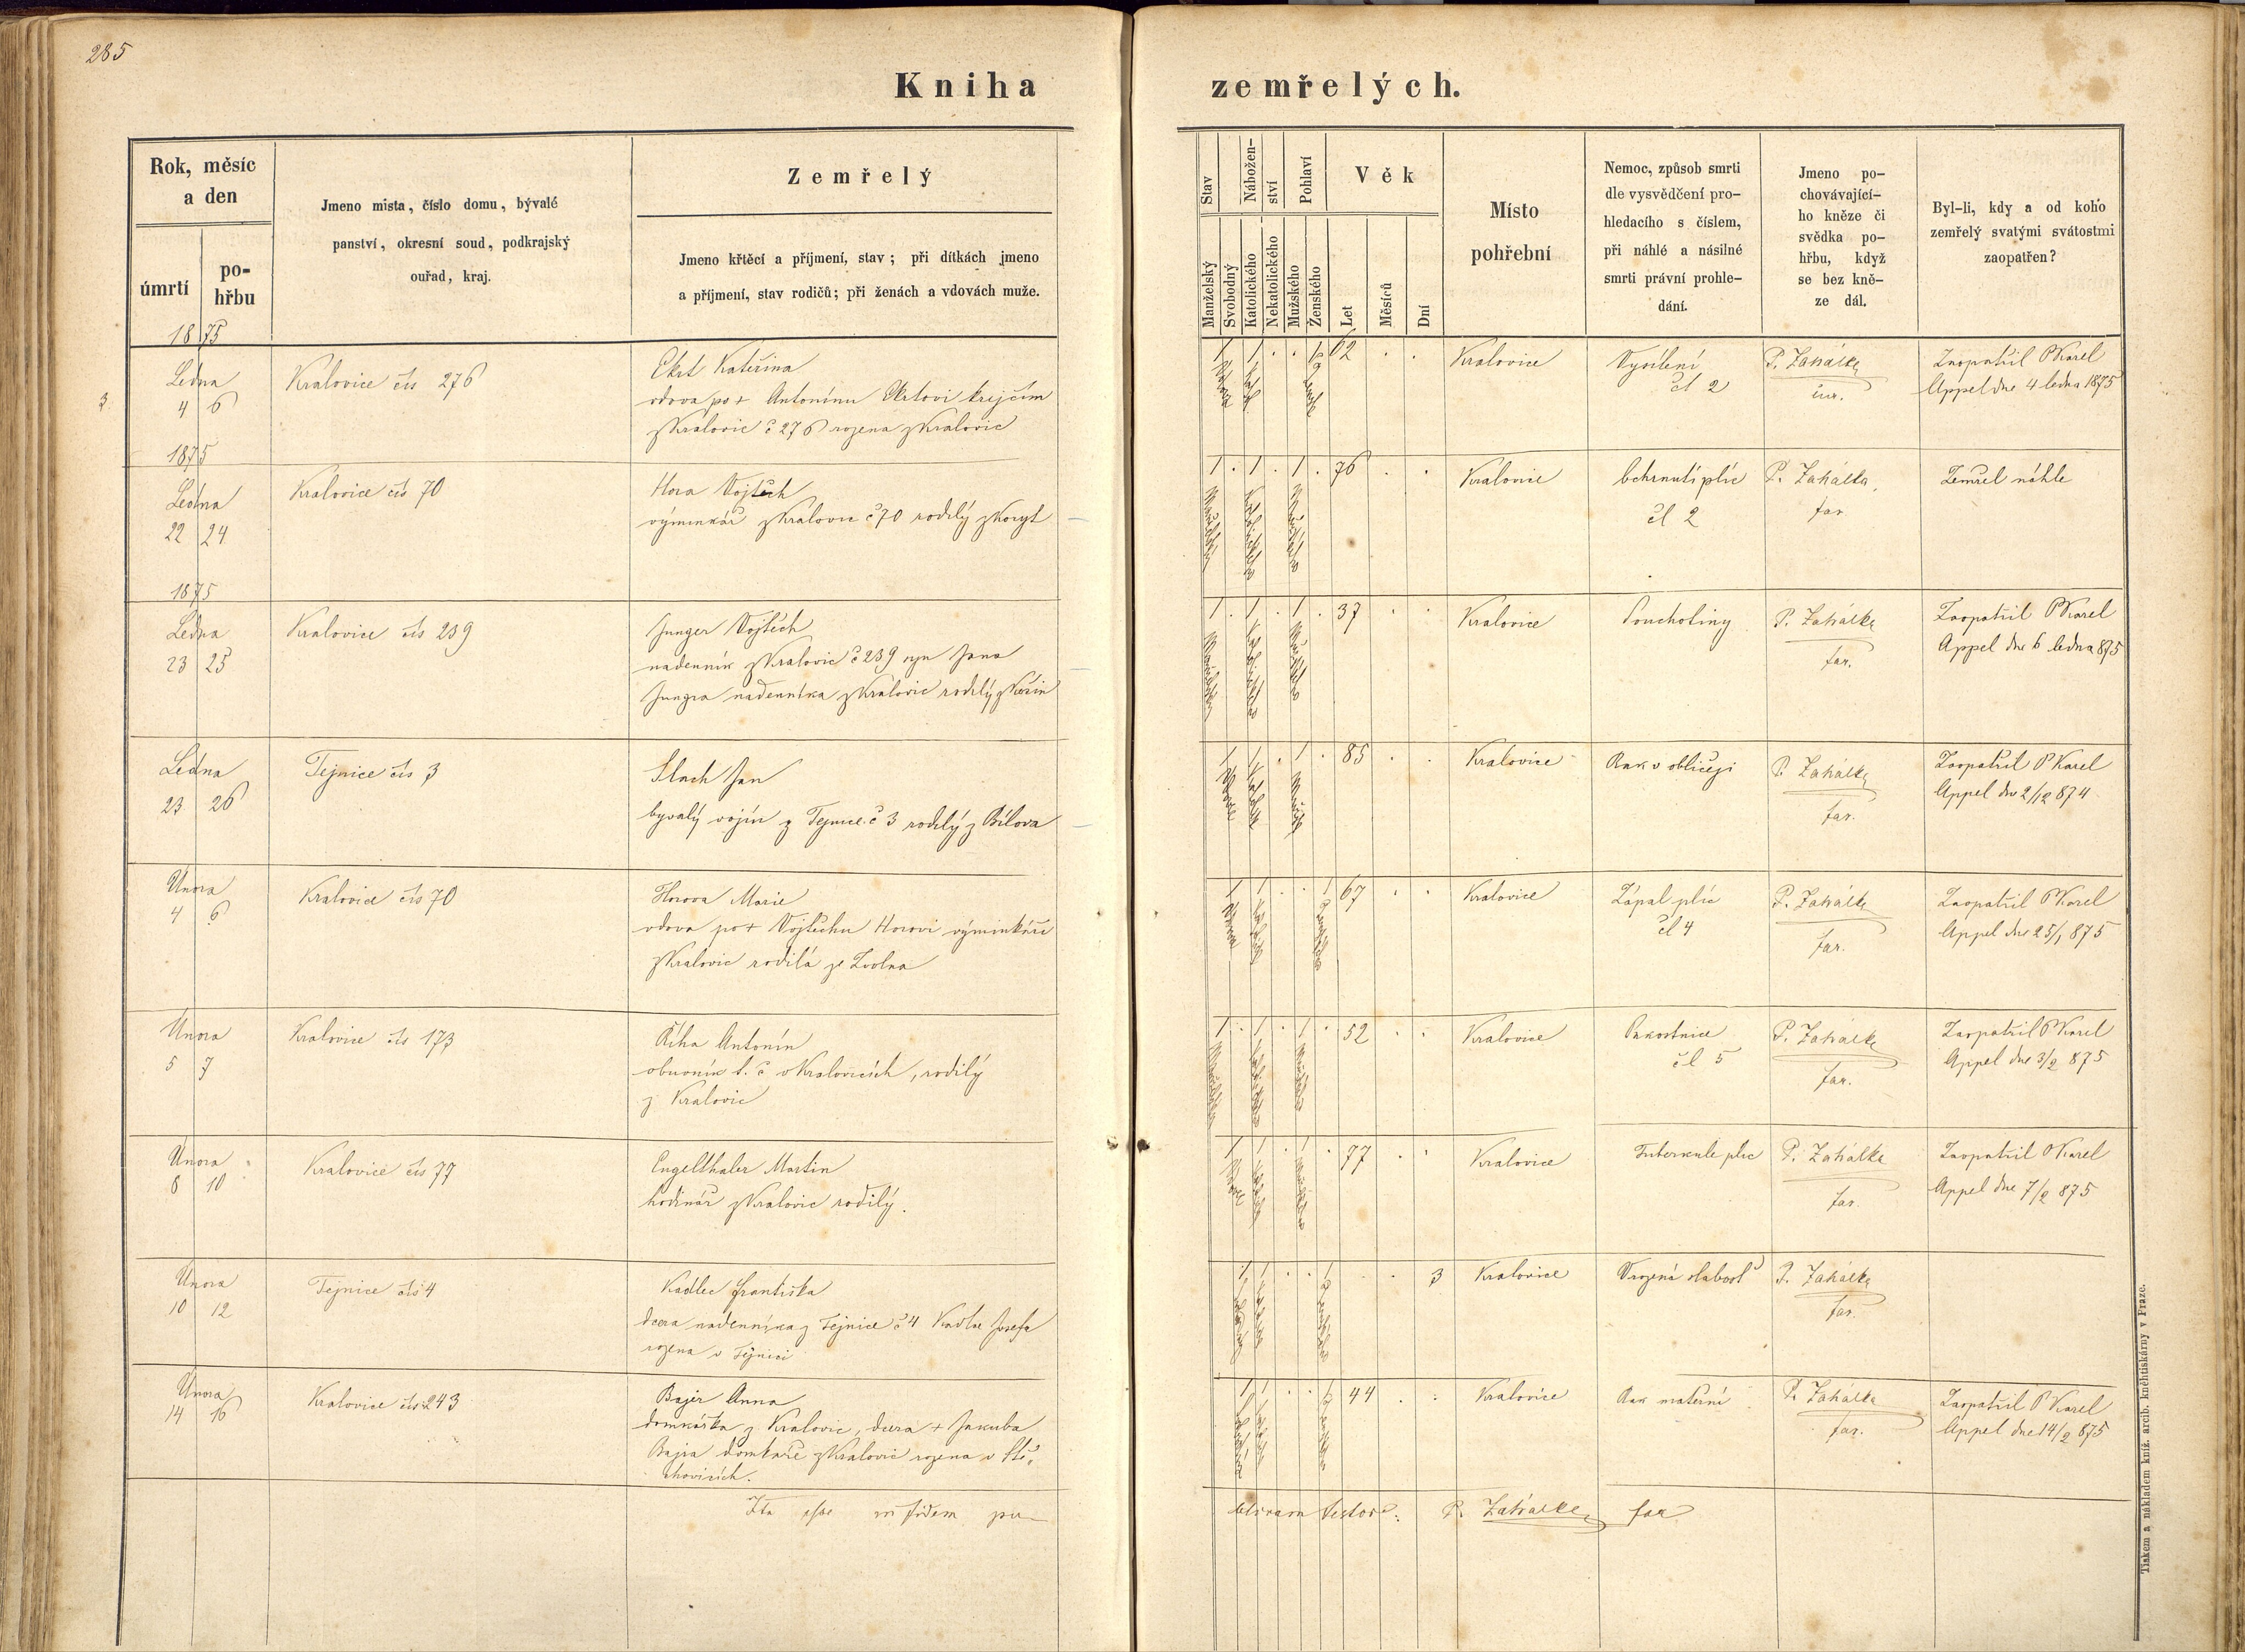 285
Kniha zemřelých.
Rok, měsíc
a den
úmrtí
po-
hřbu
Jmeno mista, číslo domu, bývalé
panství, okresní soud, podkrajský
ouřad, kraj.
Zemřelý
Jmeno křtěcí a příjmení, stav; při dítkách jmeno
a příjmení, stav rodičů; při ženách a vdovách muže.
Stav
Manželský
Svobodný
Nábožen-
ství
Katolického
Nekatolického
Pohlaví
Mužského
Ženského
Věk
Let
Měsíců
Dní
Místo
pohřební
Nemoc, způsob smrti
dle vysvědčení pro-
hledacího s číslem,
při náhlé a násilné
smrti právní prohle-
dání.
Jmeno po-
chovávající-
ho kněze či
svědka po-
hřbu, když
se bez kně-
ze dál.
Byl-li, kdy a od koho
zemřelý svatými svátostmi
zaopatřen?
1875
Ledna
4 6
Kralovice čís 276
Ekrt Kateřina
vdova po + Antonínu Ekrtovi krejčím
z Kralovic č 276 rozena z Kralovic
1 1 . . 1 62 . .
Kralovice
Vysílení
čl 2
P. Zahálka
Zaopatřil P Karel
Appel dne 4 ledna 1875
1875
Ledna
22 24
Kralovice čís 70
Hora Vojtěch
výminkář z Kralovic č 70 rodilý z Koryt
1 . 1 . 1 . 76 . .
Kralovice
ochrnutí plic
čl 2
P. Zahálka
far
Zemřel náhle
1875
Ledna
23 25
Kralovice čís 239
Junger Vojtěch
nadenník z Kralovic č 239 syn Jana
Jungra nadenníka z Kralovic rodilý z
1 . 1 . 1 . 37 . .
Kralovice
Souchotiny
P. Zahálka
far.
Zaopatřil P Karel
Appel dne 6 ledna 875
Ledna
23 26
Tejnice čís 3
Slach Jan
byvalý vojín z Tejnice č 3 rodilý z Bílova
1 1 . 1 . 85 . .
Kralovice
Rak v obličeji
P. Zahálka
far.
Zaopatřil P Karel
Appel dne 2/12 874
Února
4 6
Kralovice čís 70
Horova Marie
vdova po + Vojtěchu Horovi výminkáři
z Kralovic rodilá ze Zvolna
1 1 . . 1 67 . .
Kralovice
Zápal plic
čl 4
P. Zahálka
far.
Zaopatřil P Karel
Appel dne 25/1 875
Února
5 7
Kralovice čís 173
Říha Antonín
obuvník t. č v Kralovicích, rodilý
z Kralovic
1 . 1 . 1 . 52 . .
Kralovice
Pakostnice
čl 5
P. Zahálka
far.
Zaopatřil P Karel
Appel dne 3/2 875
Února
8 10
Kralovice čís 77
Engelthaler Martin
hodinář z Kralovic rodilý.
1 1 . 1 . 77 . .
Kralovice
Tuberkule plic
P. Zahálka
far.
Zaopatřil P Karel
Appel dne 7/2 875
Února
10 12
Tejnice čís 4
Kadlec Františka
dcera nadenníka z Tejnice č 4 Kadlce Josefa
rozena v Tejnici
1 1 . . 1 . . 3
Kralovice
Vrozená slabost
P. Zahálka
far.
Února
14 16
Kralovice čís 243
Bajer Anna
domkářka z Kralovic, dcera + Jakuba
Bajra domkaře z Kralovic rozena v
chovicích.
1 1 . . 1 44 . .
Kralovice
Rak mateřní
P. Zahálka
far.
Zaopatřil P Karel
Appel dne 14/2 875
Ita esse in fidem pu-
blicam testor: P. Zahálka far
Tiskem a nákladem kníž. arcib. kněhtiskárny v Praze.